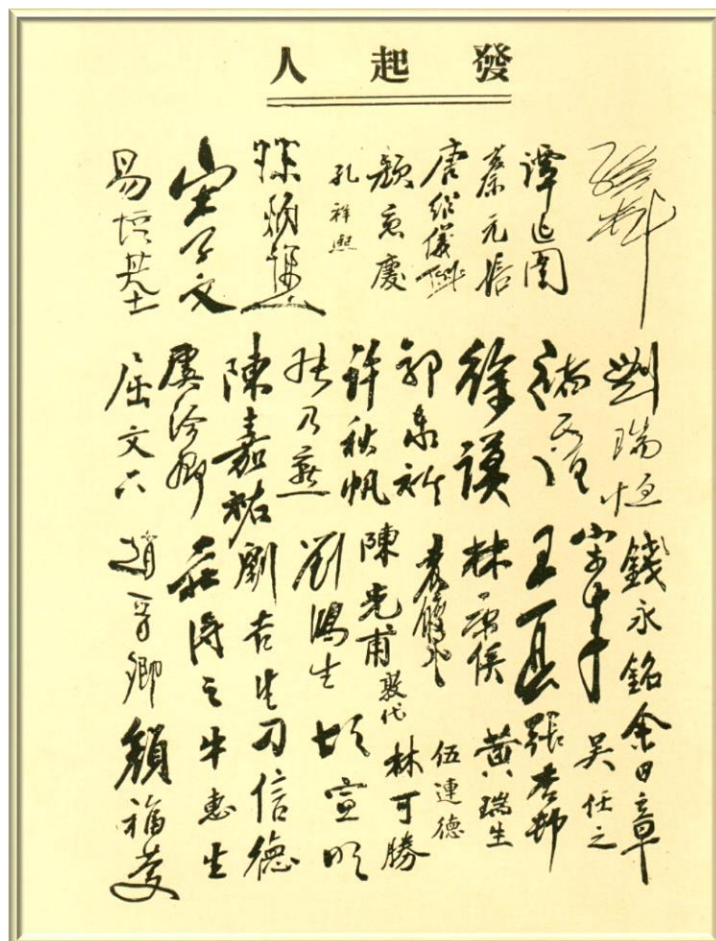 發起人
孫科
譚延闓
蔡元培
唐紹儀
顏惠慶
孔祥熙
宋子文
易培基
劉瑞恒
褚民誼
徐謨
郭泰祺
許秋帆
張乃燕
陳嘉祐
虞洽卿
屈文六
錢永銘
王一亭
林康侯
袁履登
陳光甫
劉鴻生
劉吉生
莊得之
趙晉卿
余日章
吳任之
黃瑞生
伍連德
林可勝
胡宣明
刁信德
牛惠生
顏福慶